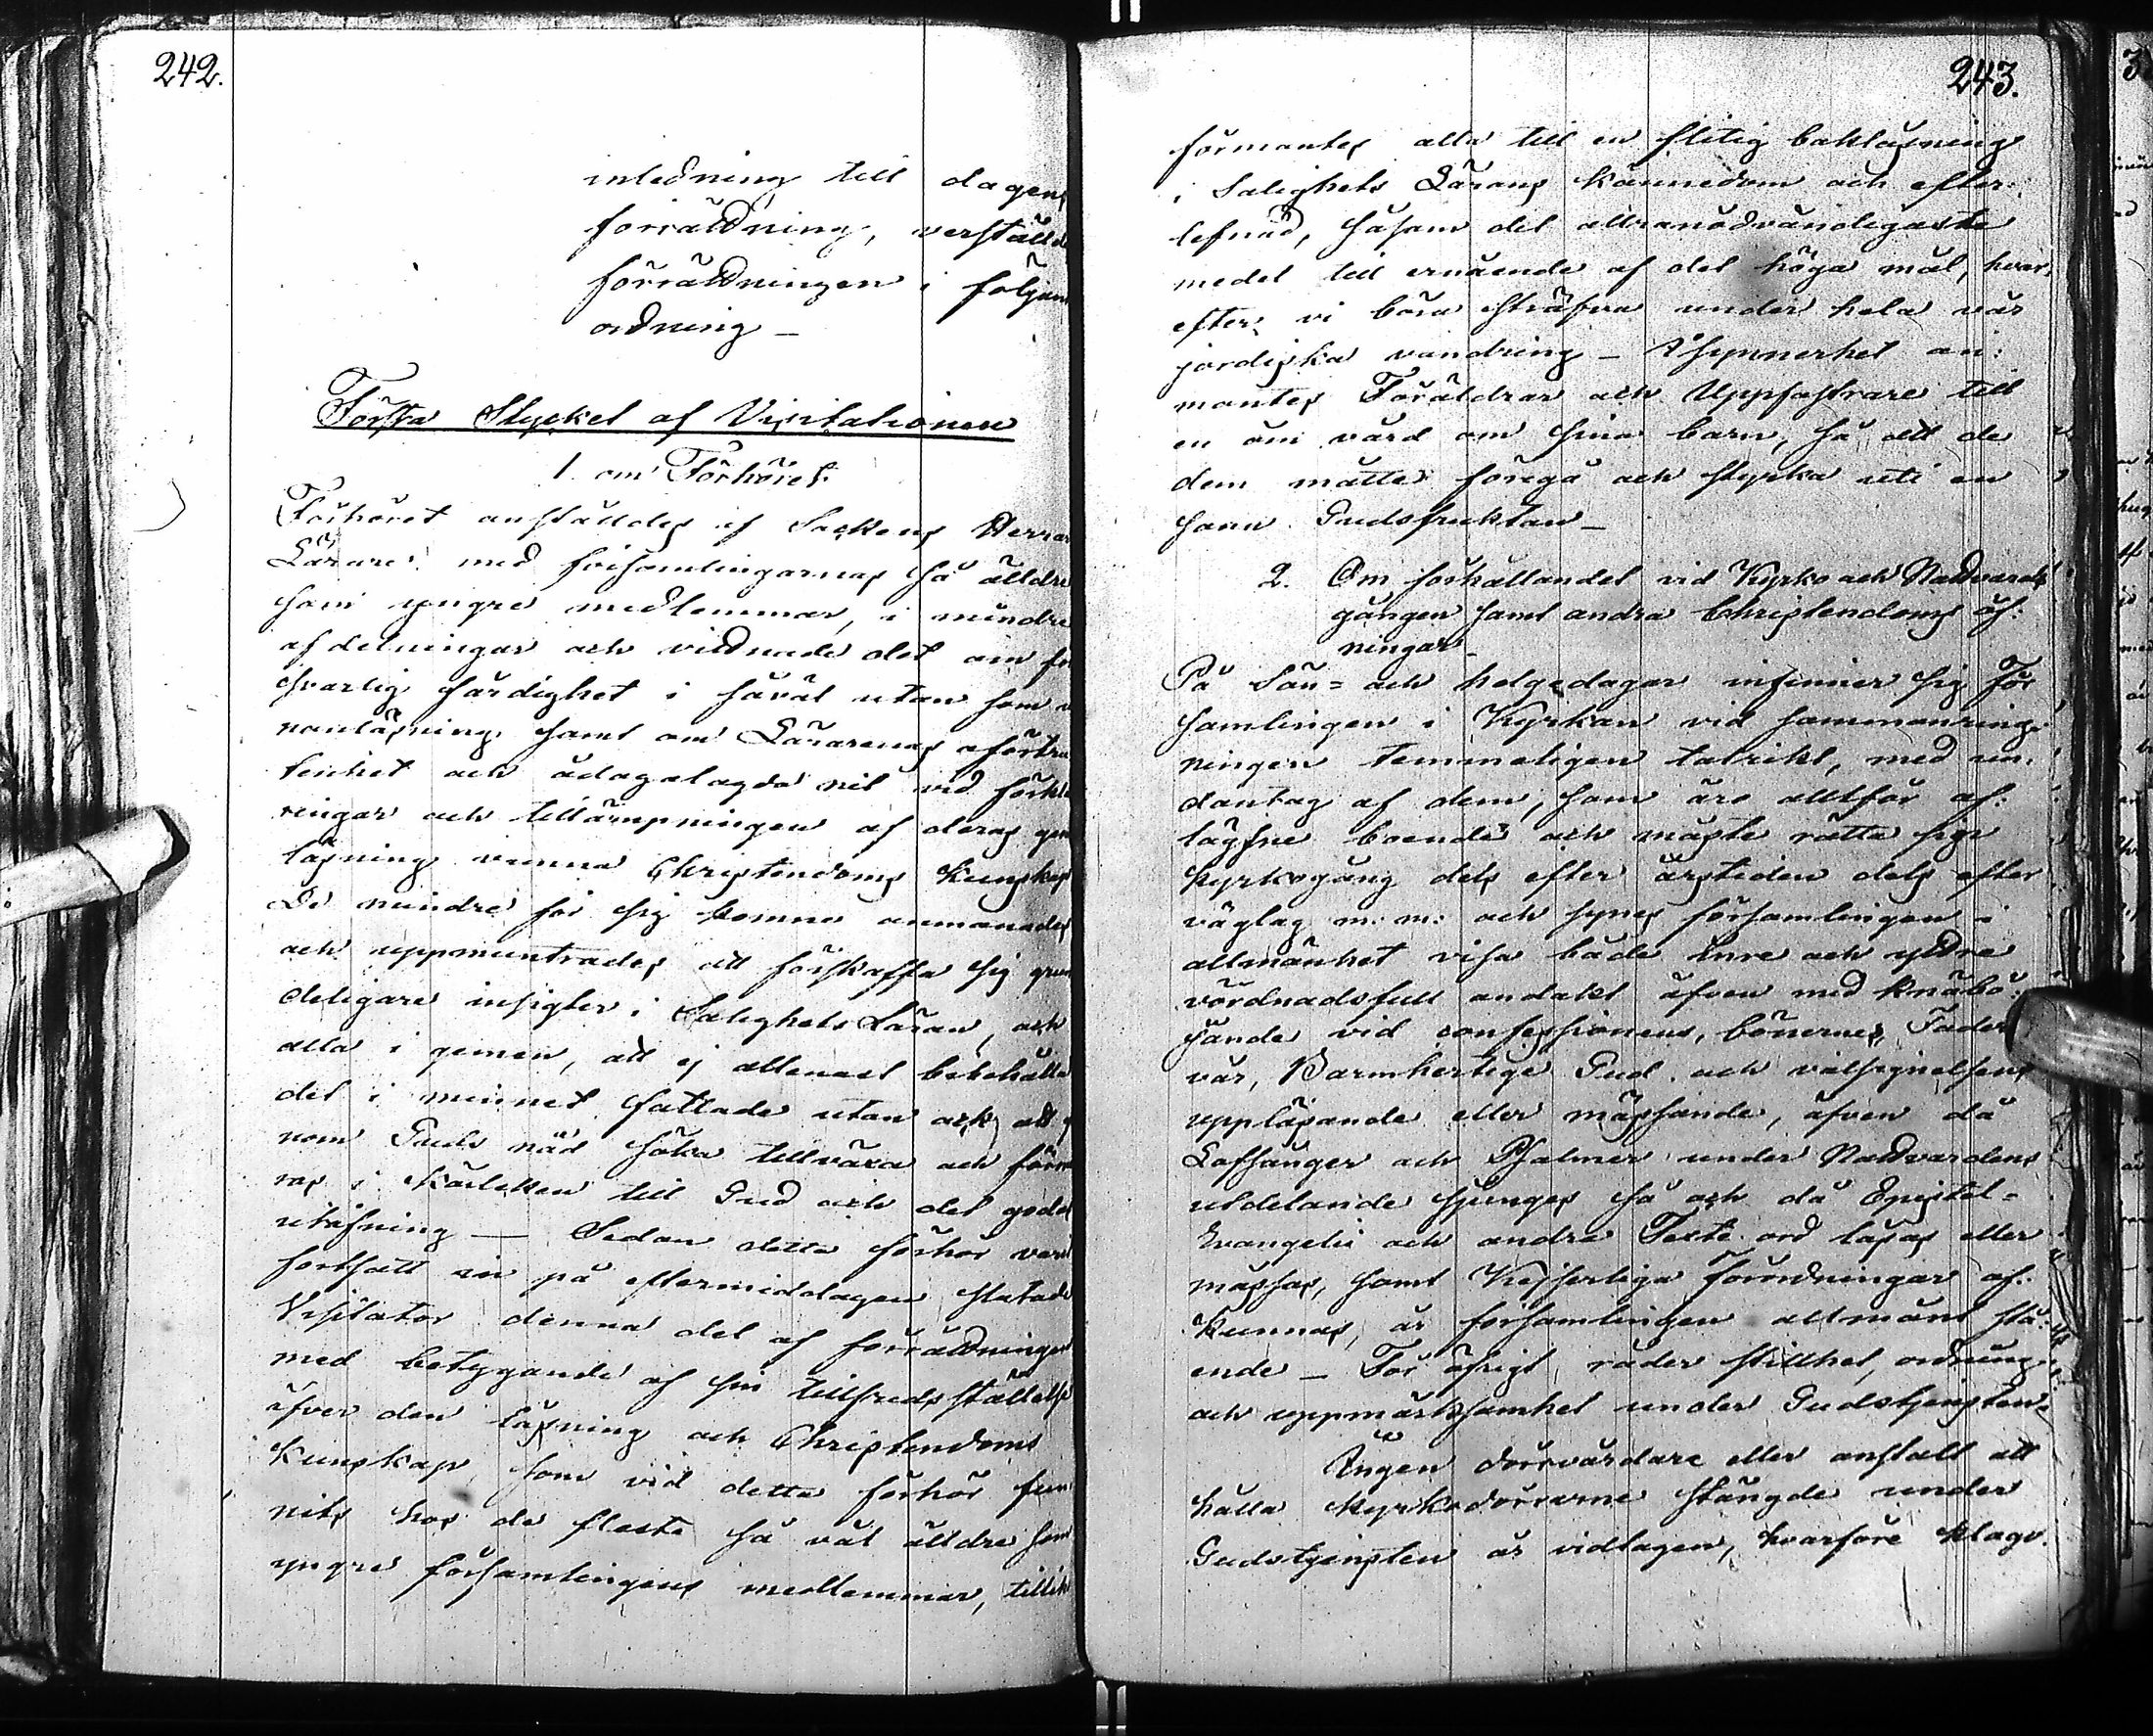 242.
inledning till dagens
förrättning, verstälde
förrättningen i följan
ordning –
Första Stycket af Visitationen
1. om Förhöret.
Förhöret anstäldes af Sockens Herrar
Lärare med församlingarnas så älldre
som yngre medlemmar, i mindre
afdelningar och vittnade det om för
svarlig färdighet i såväl utan som in
nanläsning, samt om Lärarenas oförtru
tenhet och ådagalagda nit vid förkla
ringar och tillämpningen af deras genom
läsning vunna Christendoms Kunskap
De mindre för sig komne anmanades
och uppmuntrades att förskaffa sig grun
deligare insigter i Salighets Läran, och
alla i gemen, att ej allenast bibehålla
det i minnet fattade utan ock att ge
nom Guds nåd söka tillväxa och förm
ras i Kärleken till Gud och det goda
utöfning — Sedan detta förhör varit
fortsatt in på eftermiddagen slutade
Visitator denna del af förrättningen
med betygande af sin tillfredsställelse
öfver den läsning och Christendoms
Kunskap, som vid detta förhör fun
nits hos de flesta så väl älldre som
yngre församlingens medlemmar, tillik
243.
förmantes alla till en flitig bokläsning
i Salighets Lärans kännedom och efter:
lefnad, såsom det allranödvändigaste
medel till ernående af det höga mål, hvar:
efter vi böra sträfva under hela vår
jordiska vandring – I synnerhet an:
mantes Föräldrar och Uppfostrare till
en öm vård om sina barn, så att de
dem måtte föregå och styrka uti en
sann Gudsfruktan –
2. Om förhållandet vid Kyrko och Nattvards
gången samt andra Christendoms öf:
ningar –
På Sön- och helgedagar infinner sig För
samlingen i Kyrkan vid sammanring:
ningen temmeligen talrikt, med un:
dantag af dem, som äro alltför af:
lägsne boende och måste rätta sin
kyrkogång dels efter årstiden dels efter
väglag m: m: och synes församlingen i
allmänhet visa både inre och yttre
vördnadsfull andakt äfven med knäbö:
jande vid confessionens, bönernes, Fader
vår, Barmhertige Gud och välsignelsens
uppläsande eller mässande, äfven då
Lofsånger och Psalmer under Nattvardens
utdelande sjunges så ock då Epistel-
Evangelii och andra Texte ord läsas eller
mässas, samt Kejserliga Förordningar af:
kunnas, är församlingen allmänt stå:
ende – För öfrigt råder stillhet, ordning
och uppmärksamhet under Gudstjensten.
Ingen dörrvårdare eller anstalt att
hålla kyrkodörrarne stängde under
Gudstjensten är vidtagen, hvarföre klago.